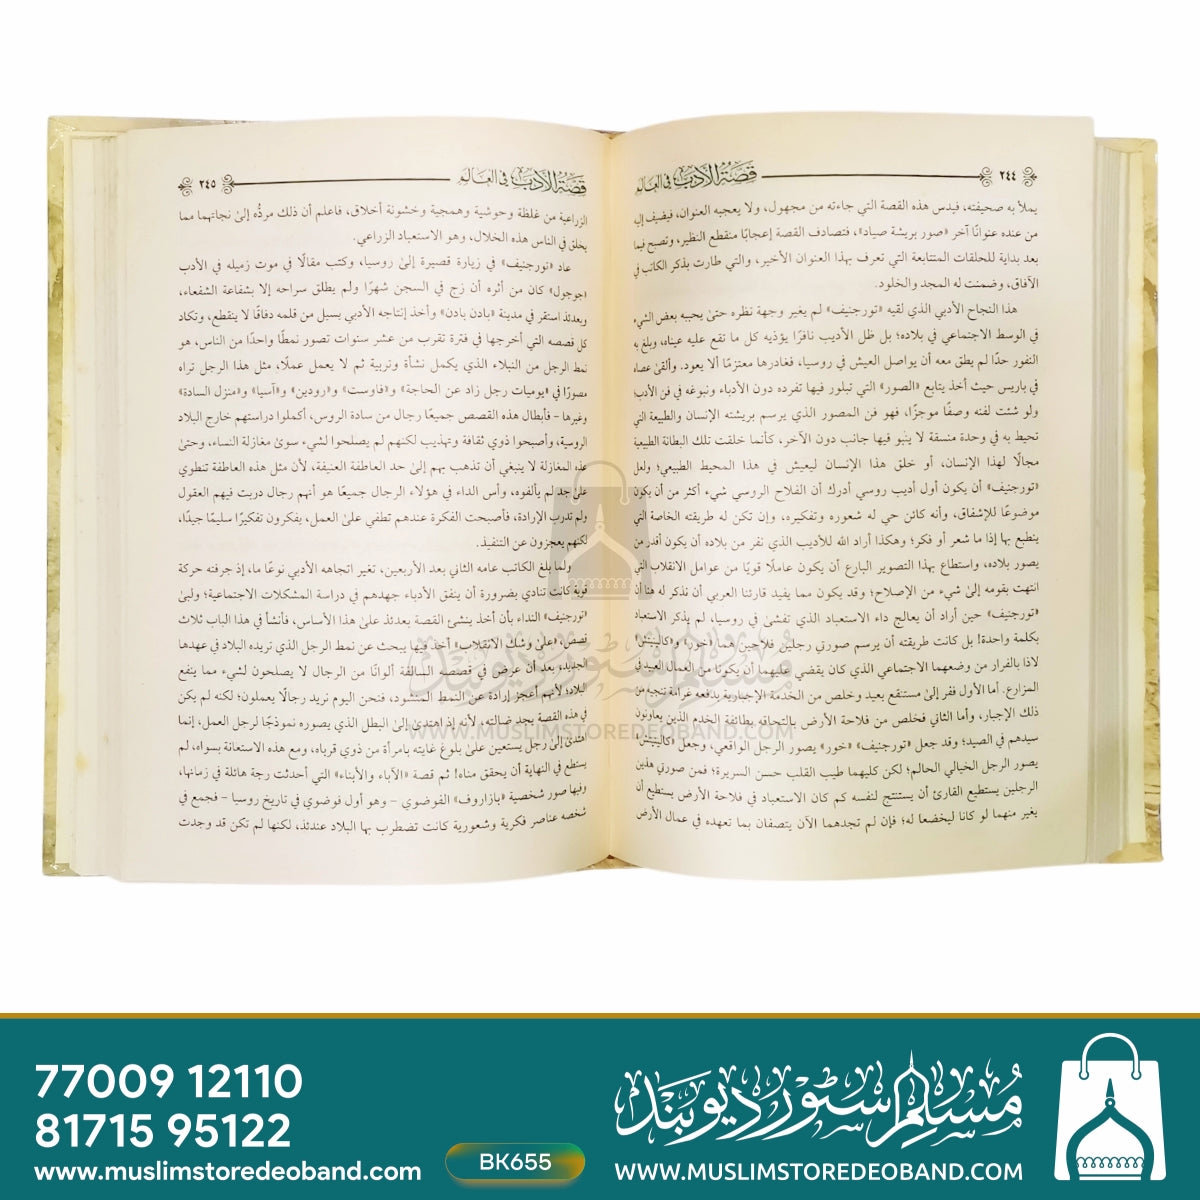 ٢٤٤ قصة الأدب في العالم
يملأ به صحيفته، فيدس هذه القصة التي جاءته من مجهول، ولا يعجبه العنوان، فيضيف إليه
من عنده عنوانًا آخر «صور بريشة صياد»، فتصادف القصة إعجابًا منقطع النظير، وتصبح فيما
بعد بداية للحلقات المتتابعة التي تعرف بهذا العنوان الأخير، والتي طارت بذكر الكاتب في
الآفاق، وضمنت له المجد والخلود.
هذا النجاح الأدبي الذي لقيه «تورجنيف» لم يغير وجهة نظره حتىٰ يحببه بعض الشيء
في الوسط الاجتماعي في بلاده؛ بل ظل الأديب نافرًا يؤذيه كل ما تقع عليه عيناه، وبلغ به
النفور حدًا لم يطق معه أن يواصل العيش في روسيا، فغادرها معتزمًا ألا يعود. وألقىٰ عصاه
في باريس حيث أخذ يتابع «الصور» التي تبلور فيها تفرده دون الأدباء ونبوغه في فن الأدب
ولو شئت لفنه وصفًا موجزًا، فهو فن المصور الذي يرسم بريشته الإنسان والطبيعة التي
تحيط به في وحدة منسقة لا ينبو فيها جانب دون الآخر، كأنما خلقت تلك البطانة الطبيعية
مجالًا لهذا الإنسان، أو خلق هذا الإنسان ليعيش في هذا المحيط الطبيعي؛ ولعل
«تورجنيف» أن يكون أول أديب روسي أدرك أن الفلاح الروسي شيء أكثر من أن يكون
موضوعًا للإشفاق، وأنه كائن حي له شعوره وتفكيره، وإن تكن له طريقته الخاصة التي
ينطبع بها إذا ما شعر أو فكر؛ وهكذا أراد الله للأديب الذي نفر من بلاده أن يكون أقدر من
يصور بلاده، واستطاع بهذا التصوير البارع أن يكون عاملًا قويًا من عوامل الانقلاب التي
انتهت بقومه إلىٰ شيء من الإصلاح؛ وقد يكون مما يفيد قارئنا العربي أن نذكر له هنا أن
«تورجنيف» حين أراد أن يعالج داء الاستعباد الذي تفشىٰ في روسيا، لم يذكر الاستعباد
بكلمة واحدة! بل كانت طريقته أن يرسم صورتي رجلين فلاحين هما «خور» و«كالينيتش»
لاذا بالفرار من وضعهما الاجتماعي الذي كان يقضي عليهما أن يكونا من العمال العبيد في
المزارع. أما الأول ففر إلىٰ مستنقع بعيد وخلص من الخدمة الإجبارية بدفعه غرامة نتيجة من
ذلك الإجبار، وأما الثاني فخلص من فلاحة الأرض بالتحاقه بطائفة الخدم الذين يعاونون
سيدهم في الصيد؛ وقد جعل «تورجنيف» «خور» يصور الرجل الواقعي، وجعل «كالينيتش»
يصور الرجل الخيالي الحالم؛ لكن كليهما طيب القلب حسن السريرة؛ فمن صورتي هذين
الرجلين يستطيع القارئ أن يستنتج لنفسه كم كان الاستعباد في فلاحة الأرض يستطيع أن
يغير منهما لو كانا ليخضعا له؛ فإن لم تجدهما الآن يتصفان بما تعهده في عمال الأرض
قصة الأدب في العالم ٢٤٥
الزراعية من غلظة وحوشية وهمجية وخشونة أخلاق، فاعلم أن ذلك مردُّه إلىٰ نجاتهما مما
يخلق في الناس هذه الخلال، وهو الاستعباد الزراعي.
عاد «تورجنيف» في زيارة قصيرة إلىٰ روسيا، وكتب مقالًا في موت زميله في الأدب
«جوجول» كان من أثره أن زج في السجن شهرًا ولم يطلق سراحه إلا بشفاعة الشفعاء،
وبعدئذ استقر في مدينة «بادن بادن» وأخذ إنتاجه الأدبي يسيل من قلمه دفاقًا لا ينقطع، وتكاد
كل قصصه التي أخرجها في فترة تقرب من عشر سنوات تصور نمطًا واحدًا من الناس، هو
نمط الرجل من النبلاء الذي يكمل نشأة وتربية ثم لا يعمل عملًا، مثل هذا الرجل تراه
مصورًا في «يوميات رجل زاد عن الحاجة» و«فاوست» و«رودين» و«آسيا» و«منزل السادة»
وغيرها – فأبطال هذه القصص جميعًا رجال من سادة الروس، أكملوا دراستهم خارج البلاد
الروسية، وأصبحوا ذوي ثقافة وتهذيب لكنهم لم يصلحوا لشيء سوىٰ مغازلة النساء، وحتىٰ
هذه المغازلة لا ينبغي أن تذهب بهم إلىٰ حد العاطفة العنيفة، لأن مثل هذه العاطفة تنطوي
علىٰ جد لم يألفوه، وأس الداء في هؤلاء الرجال جميعًا هو أنهم رجال دربت فيهم العقول
ولم تدرب الإرادة، فأصبحت الفكرة عندهم تطفي علىٰ العمل، يفكرون تفكيرًا سليمًا جيدًا،
لكنهم يعجزون عن التنفيذ.
ولما بلغ الكاتب عامه الثاني بعد الأربعين، تغير اتجاهه الأدبي نوعًا ما، إذ جرفته حركة
قوية كانت تنادي بضرورة أن ينفق الأدباء جهدهم في دراسة المشكلات الاجتماعية؛ ولبىٰ
«تورجنيف» النداء بأن أخذ ينشئ القصة بعدئذ علىٰ هذا الأساس، فأنشأ في هذا الباب ثلاث
قصص، «علىٰ وشك الانقلاب» أخذ فيها يبحث عن نمط الرجل الذي تريده البلاد في عهدها
الجديد، بعد أن عرض في قصصه السالفة ألوانًا من الرجال لا يصلحون لشيء مما ينفع
البلاد؛ لأنهم أعجز إرادة عن النمط المنشود، فنحن اليوم نريد رجالًا يعملون؛ لكنه لم يكن
في هذه القصة يجد ضالته، لأنه إذ اهتدىٰ إلىٰ البطل الذي يصوره نموذجًا لرجل العمل، إنما
اهتدىٰ إلىٰ رجل يستعين علىٰ بلوغ غايته بامرأة من ذوي قرباه، ومع هذه الاستعانة بسواه، لم
يستطع في النهاية أن يحقق مناه! ثم قصة «الآباء والأبناء» التي أحدثت رجة هائلة في زمانها،
وفيها صور شخصية «بازاروف» الفوضوي – وهو أول فوضوي في تاريخ روسيا – فجمع في
شخصه عناصر فكرية وشعورية كانت تضطرب بها البلاد عندئذ، لكنها لم تكن قد وجدت
مسلم سٹور دیوبند
WWW.MUSLIMSTOREDEOBAND.COM
77009 12110
81715 95122
www.muslimstoredeoband.com
BK655
مسلم سٹور دیوبند
WWW.MUSLIMSTOREDEOBAND.COM